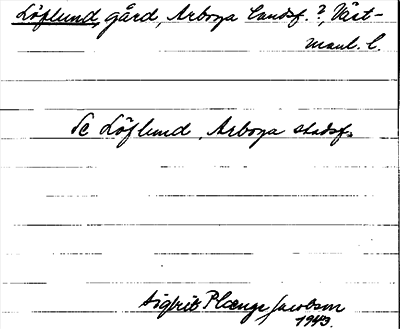 Löflund, gård, Arboga landsf.?, Väst-
manl. l.
Se Löflund, Arboga stadsf.
Sigfrid Plænge Jacobson
1943.